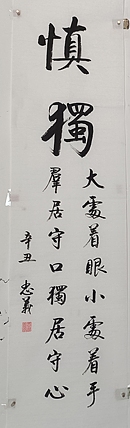 慎獨
大處着眼小處着手
羣居守口獨居守心
辛丑 忠義